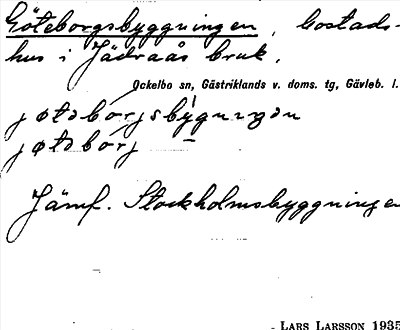 Göteborgsbyggningen, bostads-
hus i Jädraås bruk.
Ockelbo sn, Gästriklands v. doms. tg, Gävleb. l.
Jämf. Stockholmsbyggningen
LARS LARSSON 1935